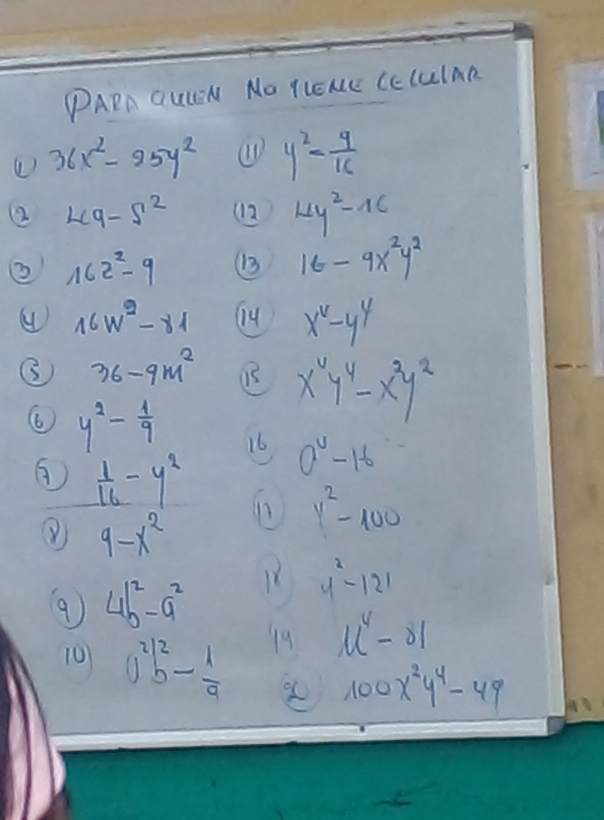 PARA QUIEN NO TIENE CELULAR
① 36x² - 25y²
② 49 - s²
③ 16z² - 9
④ 16w² - 81
⑤ 36 - 9m²
⑥ y² - 1/9
⑦ 1/16 - y²
⑧ 9 - x²
⑨ 4b² - a²
⑩ a²b² - 1/9
⑪ y² - 9/16
⑫ 4y² - 16
⑬ 16 - 9x²y²
⑭ x⁴ - y⁴
⑮ x⁴y⁴ - x²y²
⑯ a⁴ - 16
⑰ - 100
⑱ y² - 121
⑲ - 81
⑳ 100x²y⁴ - 49